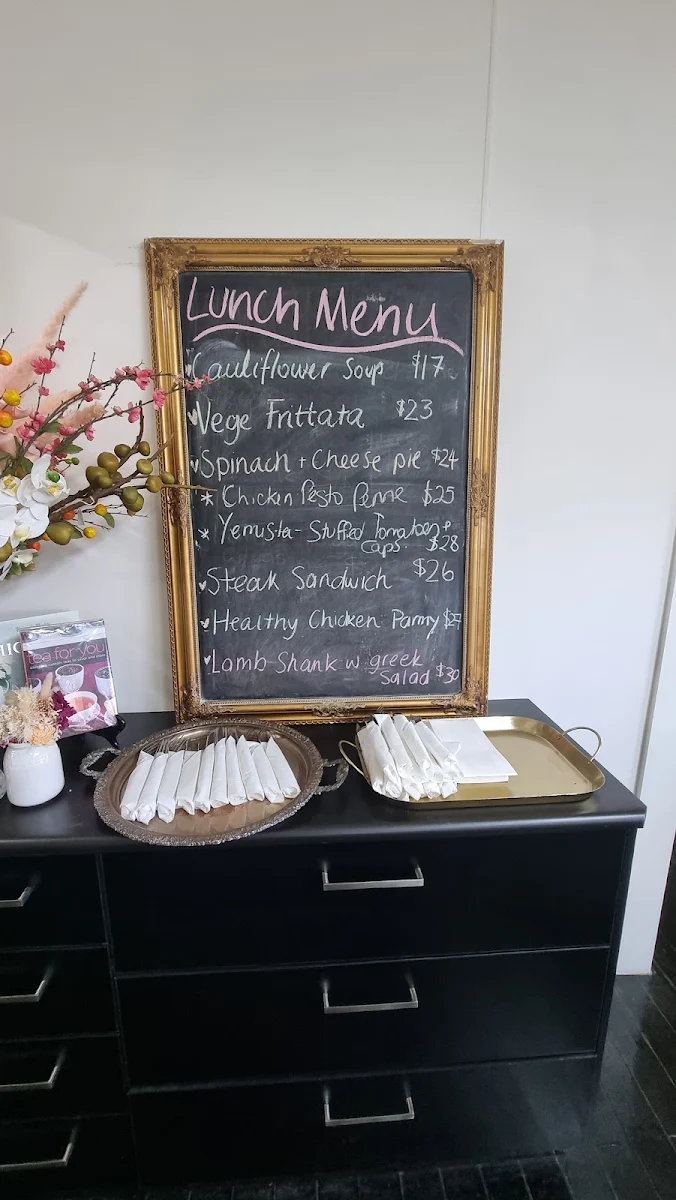 Lunch Menu
Cauliflower Soup $17
Vege Frittata $23
Spinach + Cheese pie $24
* Chicken Pesto Penne $25
* Yemista - Stuffed Tomatoes +
Caps. $28
Steak Sandwich $26
Healthy Chicken Parmy $27
Lamb Shank w greek
Salad $30
tea for you